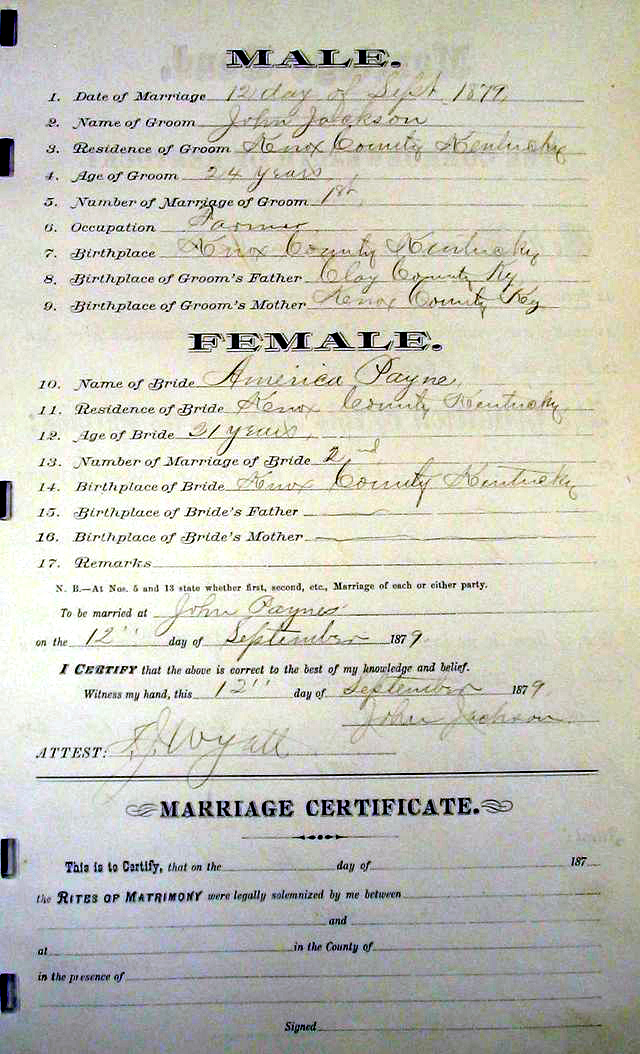 MALE.
1. Date of Marriage 12 day of Sept 1879
2. Name of Groom John Jackson
3. Residence of Groom Knox County Kentucky
4. Age of Groom 24 years
5. Number of Marriage of Groom 1st
6. Occupation Farmer
7. Birthplace Knox County Kentucky
8. Birthplace of Groom's Father Clay County Ky
9. Birthplace of Groom's Mother Knox County Ky
FEMALE.
10. Name of Bride America Payne
11. Residence of Bride Knox County Kentucky
12. Age of Bride 31 years,
13. Number of Marriage of Bride 2nd
14. Birthplace of Bride Knox County Kentucky
15. Birthplace of Bride's Father
16. Birthplace of Bride's Mother
17. Remarks
N. B.—At Nos. 5 and 13 state whether first, second, etc., Marriage of each or either party.
To be married at John Paynes
on the 12" day of September 1879
I CERTIFY that the above is correct to the best of my knowledge and belief.
Witness my hand, this 12" day of September 1879.
John Jackson
ATTEST: Wyatt
MARRIAGE CERTIFICATE.
This is to Certify, that on the day of 187
the RITES OF MATRIMONY were legally solemnized by me between
and
at in the County of
in the presence of
Signed